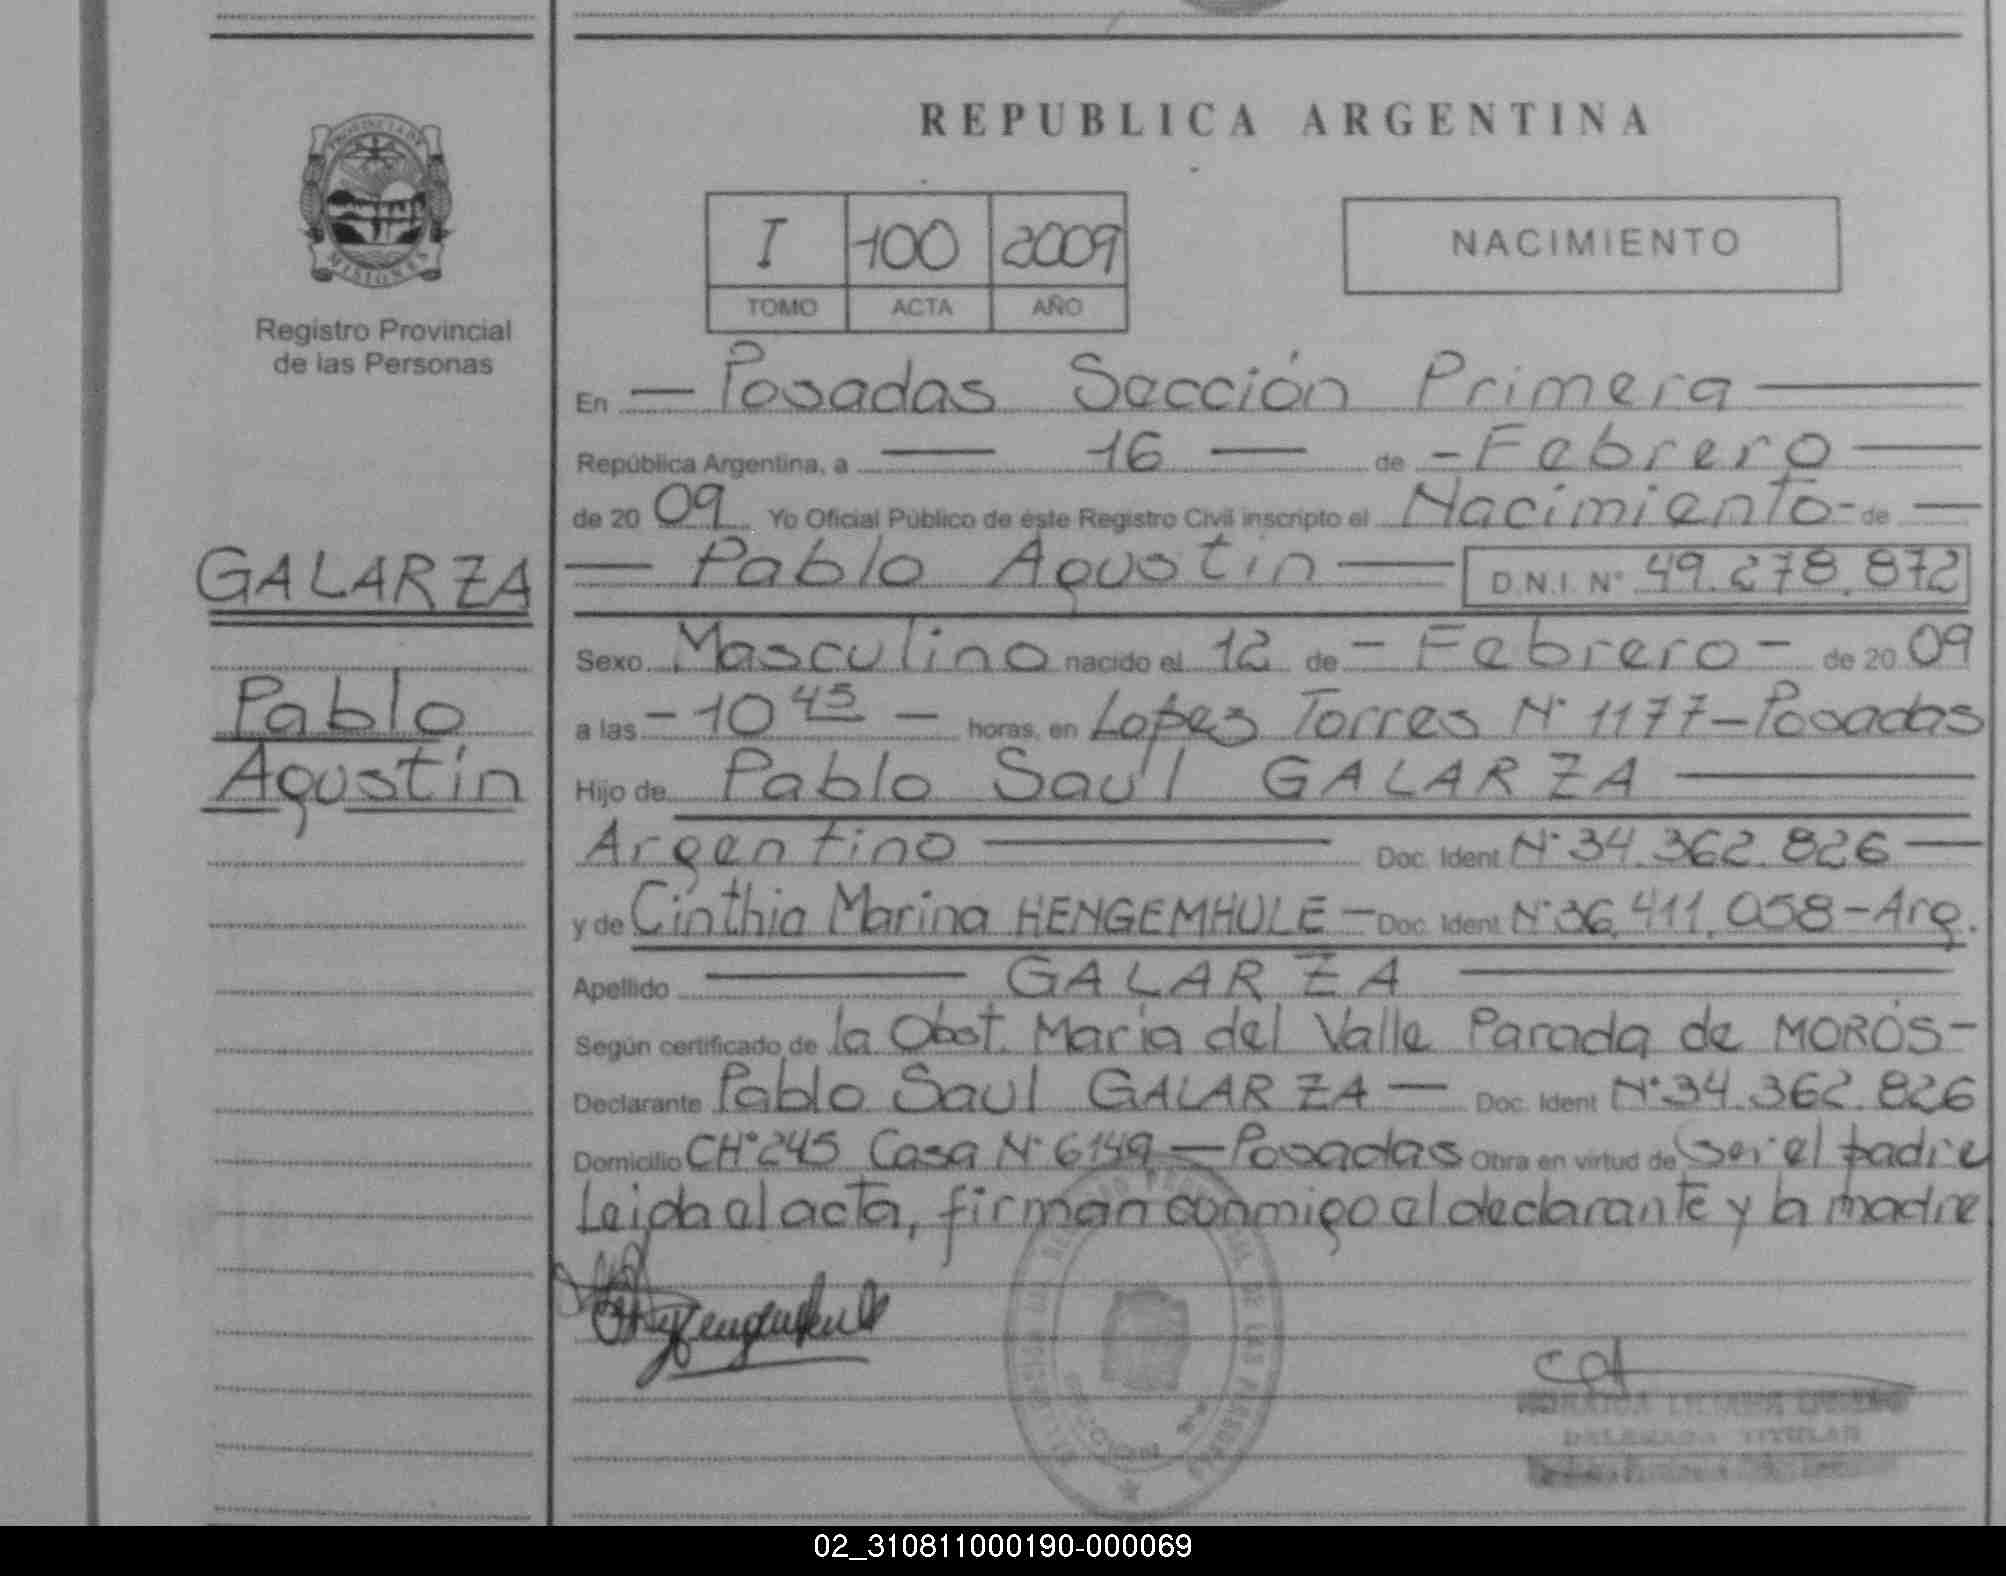 REPUBLICA ARGENTINA
PROVINCIA DE
MISIONES
Registro Provincial
de las Personas
I 100 2009
TOMO ACTA AÑO
NACIMIENTO
En — Posadas Sección Primera —
República Argentina, a — 16 — de - Febrero —
de 20 09 Yo Oficial Público de éste Registro Civil inscripto el Nacimiento - de —
GALARZA
— Pablo Agustin — D.N.I. N° 49.278.872
Sexo Masculino nacido el 12 de - Febrero - de 20 09
Pablo
a las - 10 45 - horas, en Lopez Torres N° 1177 - Posadas
Agustín
Hijo de Pablo Saúl GALARZA —
Argentino — Doc. Ident N° 34.362.826 —
y de Cinthia Marina HENGEMHULE — Doc. Ident N° 36.411.058 - Arg.
Apellido — GALARZA —
Según certificado de la Obst. Maria del Valle Parada de MORÓS -
Declarante Pablo Saul GALARZA — Doc. Ident N° 34.362.826
Domicilio CH° 245 Casa N° 6149 — Posadas Obra en virtud de Ser el padre
Leida el acta, firman conmigo el declarante y la madre
DELEGADA TITULAR
02_310811000190-000069